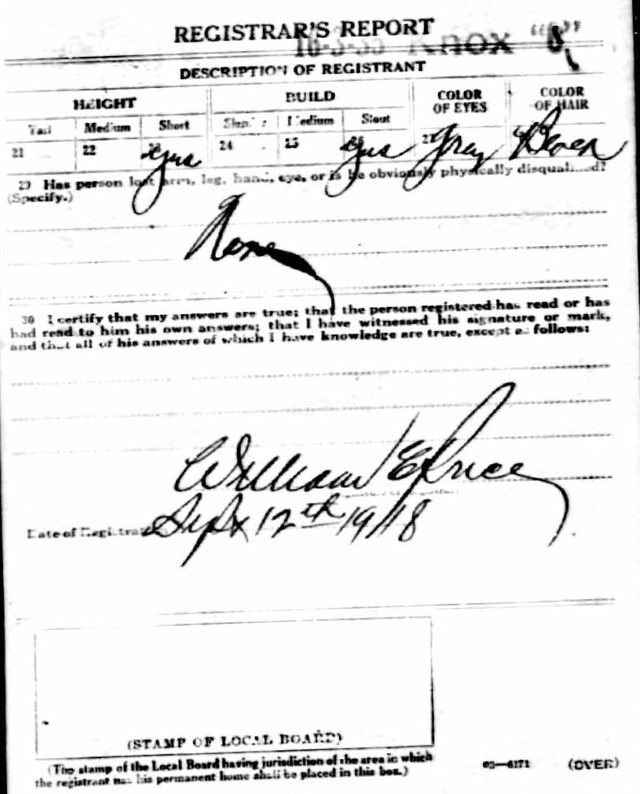 REGISTRAR'S REPORT
DESCRIPTION OF REGISTRANT
HEIGHT BUILD COLOR OF EYES COLOR OF HAIR
Tall Medium Short Slender Medium Stout
21 22 23 yes 24 25 26 yes 27 Gray
29 Has person lost arm, leg, hand, eye, or is he obviously physically disqualified?
(Specify.)
None
30 I certify that my answers are true; that the person registered has read or has
had read to him his own answers; that I have witnessed his signature or mark,
and that all of his answers of which I have knowledge are true, except as follows:
William E Price
Date of Registration Sept 12th 1918
(STAMP OF LOCAL BOARD)
(The stamp of the Local Board having jurisdiction of the area in which
the registrant has his permanent home shall be placed in this box.)
03—6171 (OVER)